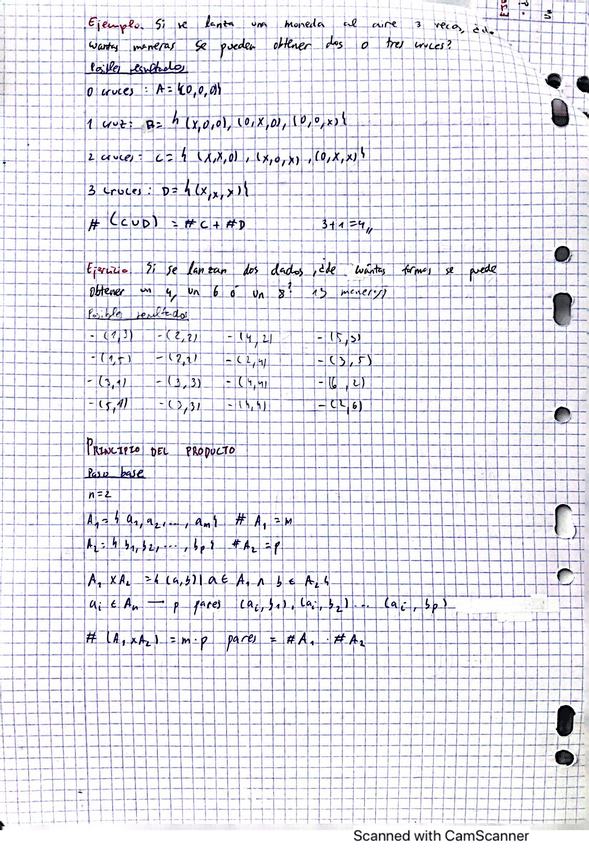 Ejemplo. Si se lanza una moneda al aire 3 veces, ¿de
cuantas maneras se pueden obtener dos o tres cruces?
Posibles resultados
0 cruces : A = {(0,0,0)}
1 cruz: B = { (X,0,0), (0,X,0), (0,0,X) }
2 cruces: C = { (X,X,0), (X,0,X), (0,X,X) }
3 cruces: D = { (X,X,X) }
# (C∪D) = #C + #D 3+1=4,,
Ejercicio. Si se lanzan dos dados, ¿de cuántas formas se puede
obtener un 4, un 6 ó un 8? 13 maneras
Posibles resultados
- (1,3) - (2,2) - (4,2) - (5,3)
- (1,5) - (2,2) - (2,4) - (3,5)
- (3,1) - (3,3) - (4,4) - (6,2)
- (5,1) - (3,3) - (4,4) - (2,6)
PRINCIPIO DEL PRODUCTO
Paso base
n=2
A₁ = { a₁, a₂, ..., am } # A₁ = m
A₂ = { b₁, b₂, ..., bp } # A₂ = p
A₁ X A₂ = { (a,b) | a ∈ A₁ ∧ b ∈ A₂ }
ai ∈ An — p pares (ai, b1), (ai, b2) ... (ai, bp)
# (A₁ X A₂) = m·p pares = #A₁ · #A₂
Scanned with CamScanner